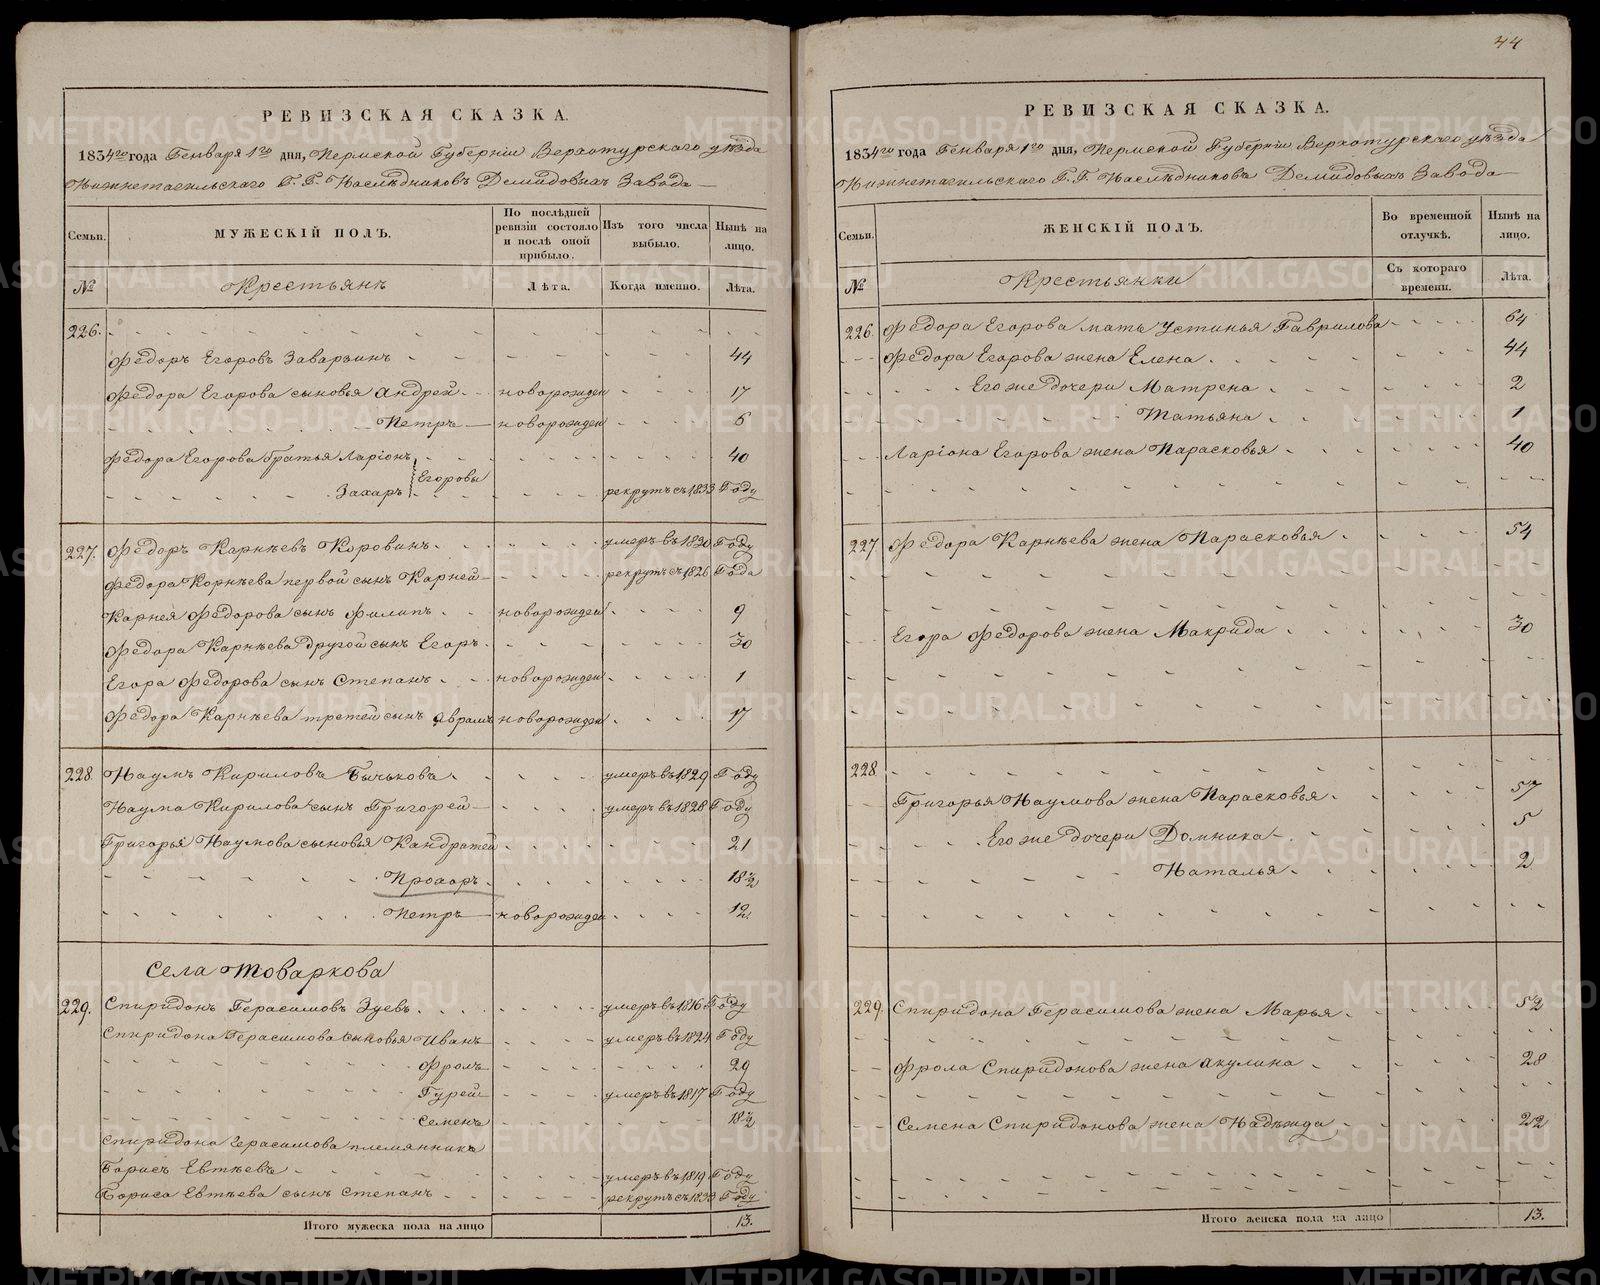 РЕВИЗСКАЯ СКАЗКА.
1834го года Генваря 1го дня, Пермской Губерніи Верхотурскаго уѣзда
Нижнетагильскаго Г. Г. Наслѣдниковъ Демидовыхъ Завода
Семьи. МУЖЕСКІЙ ПОЛЪ. По послѣдней ревизіи состояло и послѣ оной прибыло. Изъ того числа выбыло. Нынѣ на лицо.
№ Крестьянъ Лѣта. Когда именно. Лѣта.
226.
Федоръ Егоровъ Заварзинъ 44
Федора Егорова сыновья Андрей новорожден 17
Петръ новорожден 6
Федора Егорова братья Ларіонъ 40
Захаръ Егоровы рекрутъ съ 1833 Году
227. Федоръ Карнѣевъ Коровинъ умеръ въ 1830 Году
Федора Корнѣева первой сынъ Карней рекрутъ съ 1826 Года
Карнея Федорова сынъ Филипъ новорожден 9
Федора Карнѣева другой сынъ Егоръ 30
Егора Федорова сынъ Степанъ новорожден 1
Федора Карнѣева третей сынъ Аврамъ новорожден 17
228. Наумъ Кириловъ Бычьковъ умеръ въ 1829 Году
Наума Кирилова сынъ Григорей умеръ въ 1828 Году
Григорья Наумова сыновья Кандратей 21
Прохоръ 18½
Петръ новорожден 12
Села Товаркова
229. Спиридонъ Герасимовъ Зуевъ умеръ въ 1816 Году
Спиридона Герасимова сыновья Иванъ умеръ въ 1824 Году
Фролъ 29
Гурей умеръ въ 1817 Году
Семенъ 18½
Спиридона Герасимова племянникъ
Борисъ Евтѣевъ умеръ въ 1819 Году
Бориса Евтѣева сынъ Степанъ рекрутъ съ 1833 Году
Итого мужеска пола на лицо 13.
44
РЕВИЗСКАЯ СКАЗКА.
1834го года Генваря 1го дня, Пермской Губерніи Верхотурскаго уѣзда
Нижнетагильскаго Г. Г. Наслѣдниковъ Демидовыхъ Завода
Семьи. ЖЕНСКІЙ ПОЛЪ. Во временной отлучкѣ. Нынѣ на лицо.
№ Крестьянки Съ котораго времени. Лѣта.
226. Федора Егорова мать Устинья Гаврилова 64
Федора Егорова жена Елена 44
Его же дочери Матрена 2
Татьяна 1
Ларіона Егорова жена Парасковья 40
227. Федора Карнѣева жена Парасковья 54
Егора Федорова жена Макрида 30
228.
Григорья Наумова жена Парасковья 57
Его же дочери Домника 5
Наталья 2
229. Спиридона Герасимова жена Марья 52
Фрола Спиридонова жена Акулина 28
Семена Спиридонова жена Надежда 22
Итого женска пола на лицо 13.
METRIKI.GASO-URAL.RU